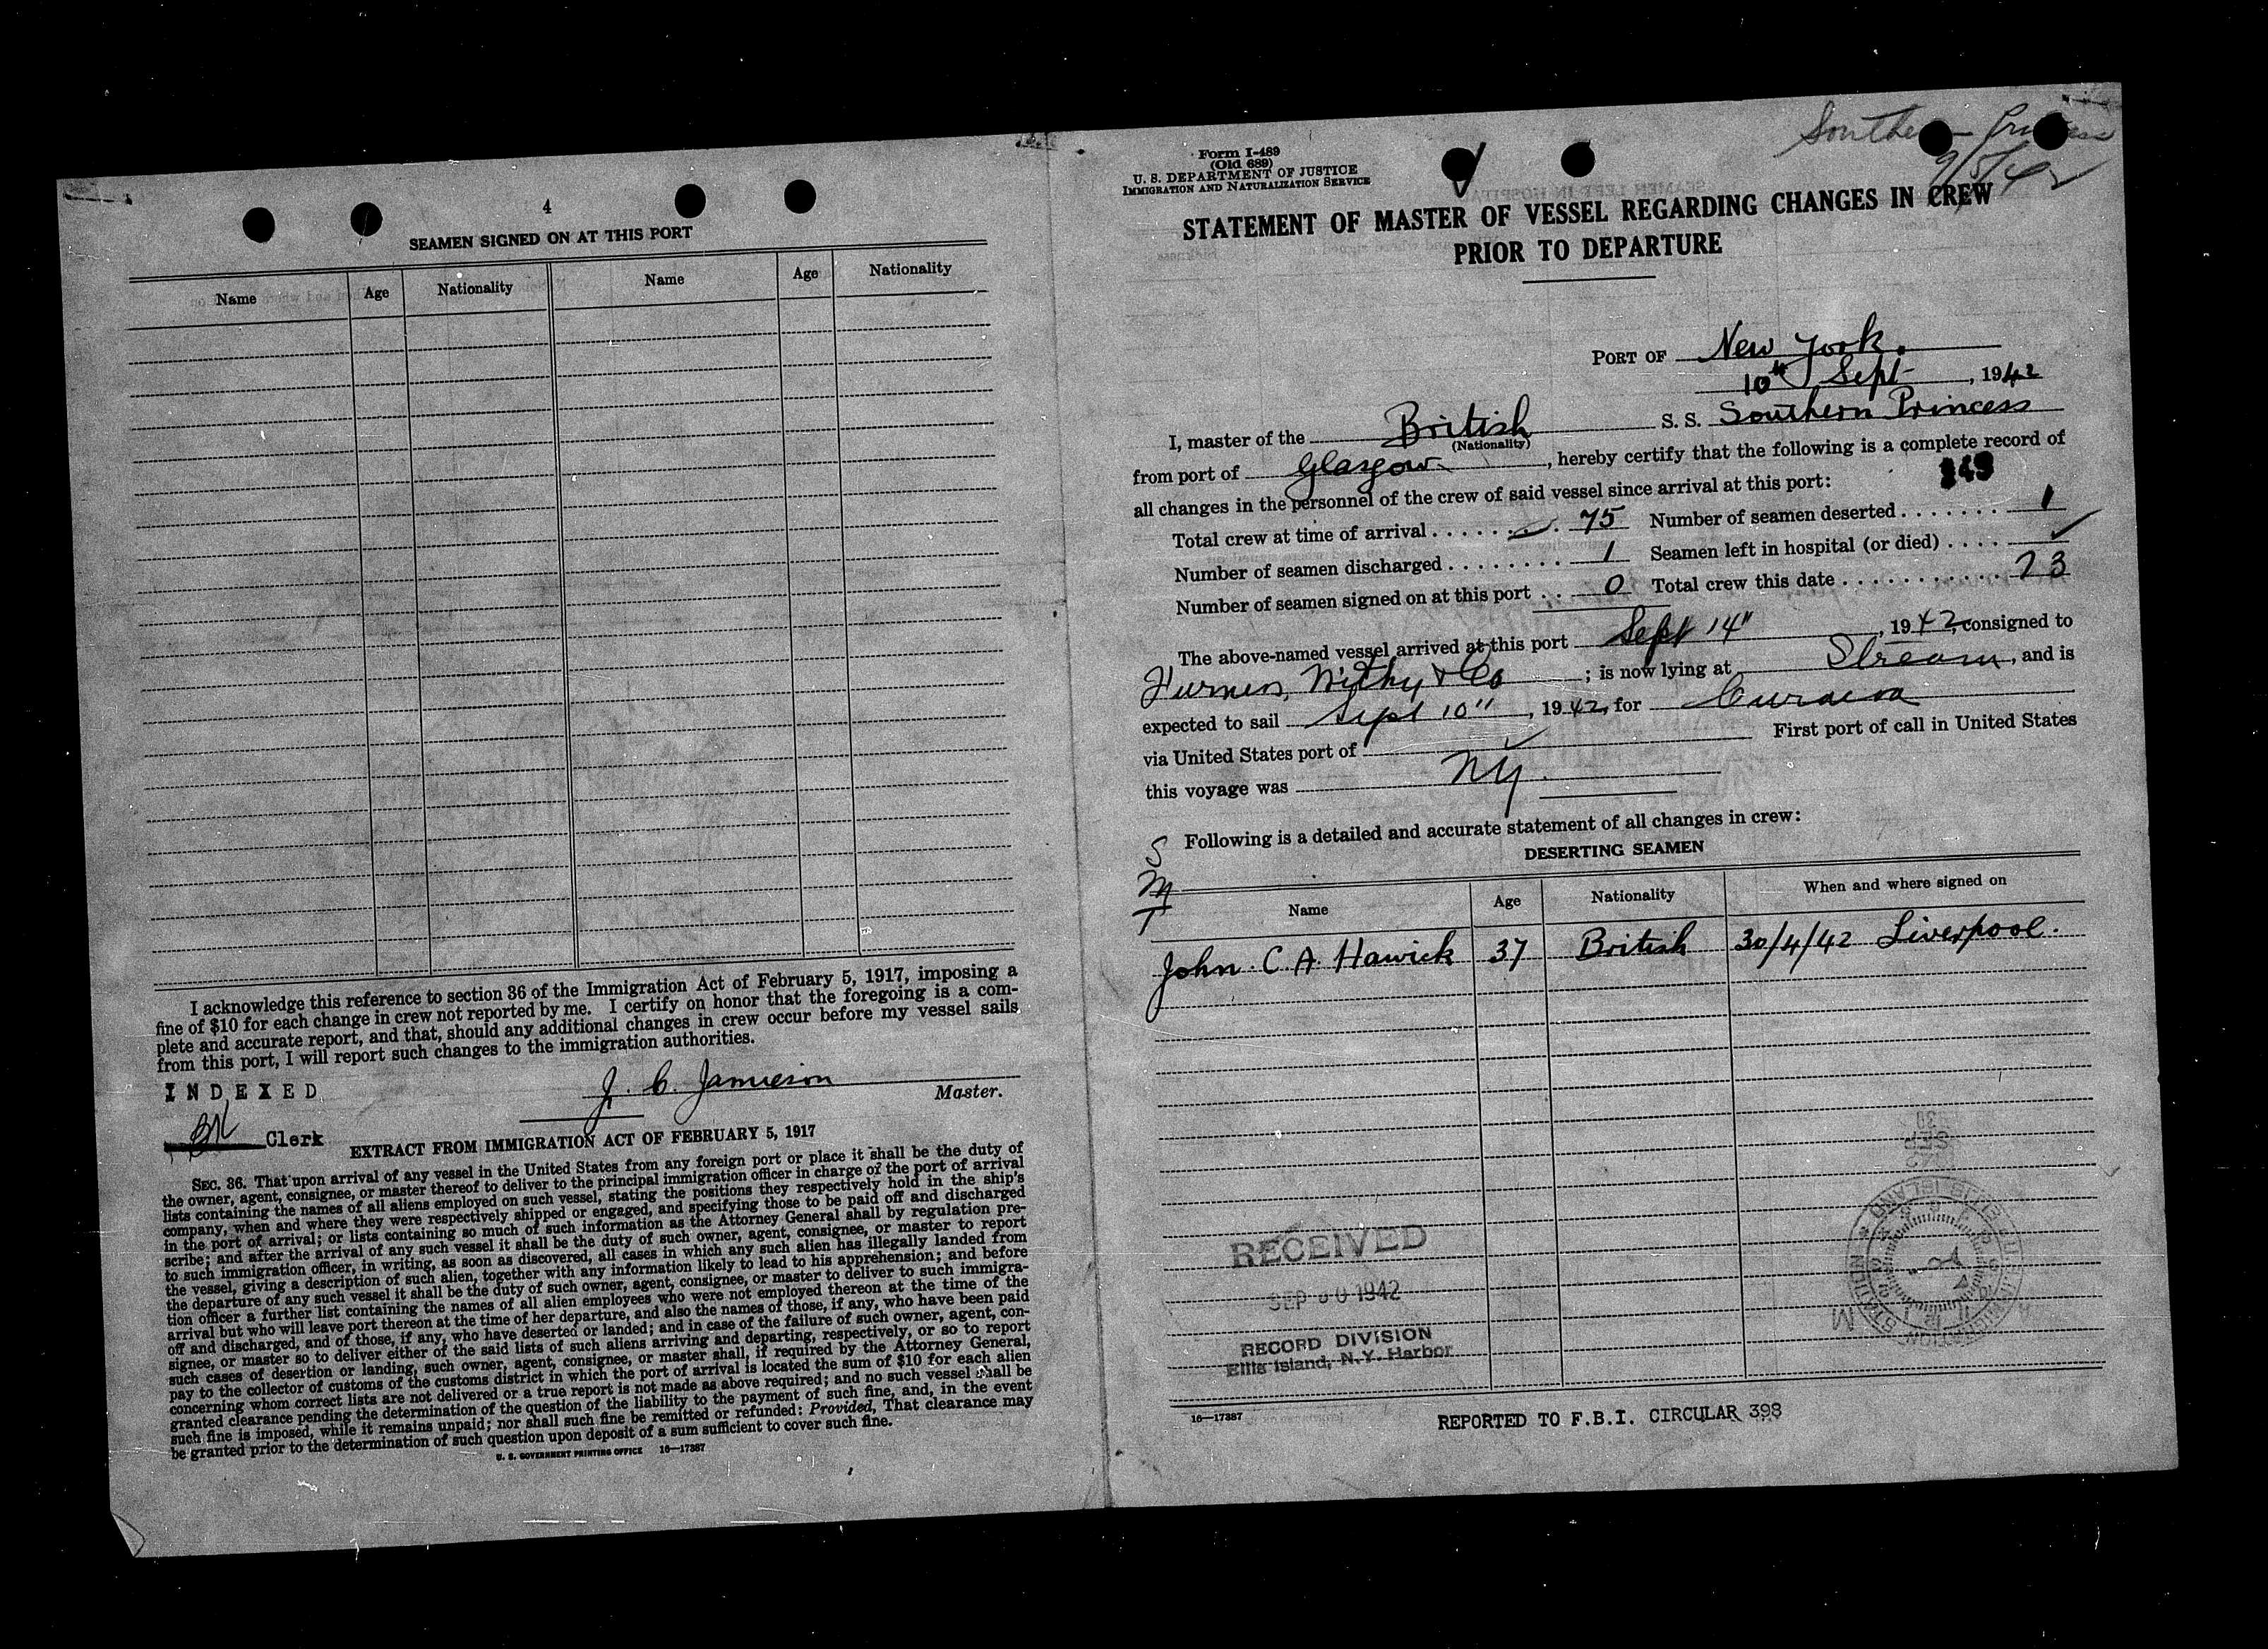 4
SEAMEN SIGNED ON AT THIS PORT
Name Age Nationality Name Age Nationality
I acknowledge this reference to section 36 of the Immigration Act of February 5, 1917, imposing a
fine of $10 for each change in crew not reported by me. I certify on honor that the foregoing is a com-
plete and accurate report, and that, should any additional changes in crew occur before my vessel sails
from this port, I will report such changes to the immigration authorities.
INDEXED
J. C. Jamieson Master.
BK Clerk
EXTRACT FROM IMMIGRATION ACT OF FEBRUARY 5, 1917
SEC. 36. That upon arrival of any vessel in the United States from any foreign port or place it shall be the duty of
the owner, agent, consignee, or master thereof to deliver to the principal immigration officer in charge of the port of arrival
lists containing the names of all aliens employed on such vessel, stating the positions they respectively hold in the ship's
company, when and where they were respectively shipped or engaged, and specifying those to be paid off and discharged
in the port of arrival; or lists containing so much of such information as the Attorney General shall by regulation pre-
scribe; and after the arrival of any such vessel it shall be the duty of such owner, agent, consignee, or master to report
to such immigration officer, in writing, as soon as discovered, all cases in which any such alien has illegally landed from
the vessel, giving a description of such alien, together with any information likely to lead to his apprehension; and before
the departure of any such vessel it shall be the duty of such owner, agent, consignee, or master to deliver to such immigra-
tion officer a further list containing the names of all alien employees who were not employed thereon at the time of the
arrival but who will leave port thereon at the time of her departure, and also the names of those, if any, who have been paid
off and discharged, and of those, if any, who have deserted or landed; and in case of the failure of such owner, agent, con-
signee, or master so to deliver either of the said lists of such aliens arriving and departing, respectively, or so to report
such cases of desertion or landing, such owner, agent, consignee, or master shall, if required by the Attorney General,
pay to the collector of customs of the customs district in which the port of arrival is located the sum of $10 for each alien
concerning whom correct lists are not delivered or a true report is not made as above required; and no such vessel shall be
granted clearance pending the determination of the question of the liability to the payment of such fine, and, in the event
such fine is imposed, while it remains unpaid; nor shall such fine be remitted or refunded: Provided, That clearance may
be granted prior to the determination of such question upon deposit of a sum sufficient to cover such fine.
U. S. GOVERNMENT PRINTING OFFICE 16—17387
Form I-489
(Old 689)
U. S. DEPARTMENT OF JUSTICE
IMMIGRATION AND NATURALIZATION SERVICE
Southern Princess
9/5/42
STATEMENT OF MASTER OF VESSEL REGARDING CHANGES IN CREW
PRIOR TO DEPARTURE
PORT OF New York.
10th Sept, 1942
I, master of the British S. S. Southern Princess
(Nationality)
from port of Glasgow, hereby certify that the following is a complete record of
all changes in the personnel of the crew of said vessel since arrival at this port:
Total crew at time of arrival 75 Number of seamen deserted 1
Number of seamen discharged 1 Seamen left in hospital (or died) ✓
Number of seamen signed on at this port 0 Total crew this date 73
The above-named vessel arrived at this port Sept 14", 1942, consigned to
Furness, Withy & Co; is now lying at Stream, and is
expected to sail Sept 10", 1942, for Curacoa
via United States port of First port of call in United States
this voyage was NY.
Following is a detailed and accurate statement of all changes in crew:
S
M
T
DESERTING SEAMEN
Name Age Nationality When and where signed on
John C. A. Hawick 37 British 30/4/42 Liverpool.
RECEIVED
SEP 30 1942
RECORD DIVISION
Ellis Island, N.Y. Harbor
16—17387
REPORTED TO F.B.I. CIRCULAR 398